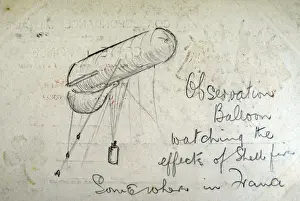 Observation
Balloon
watching the
effects of Shell fire
Somewhere in France